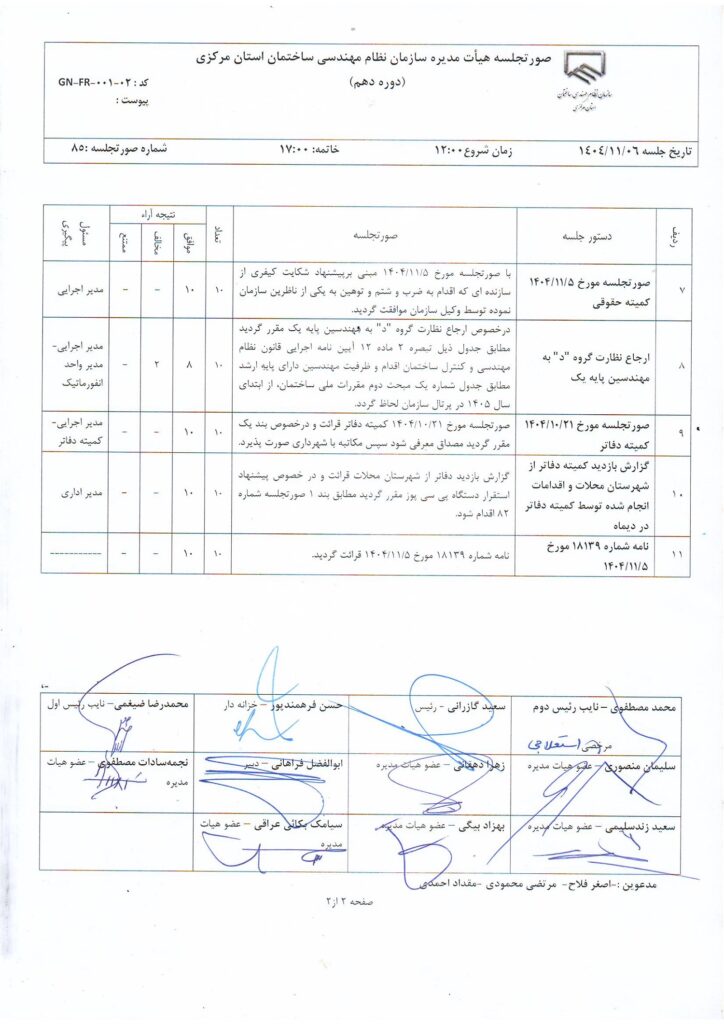 صورتجلسه هیأت مدیره سازمان نظام مهندسی ساختمان استان مرکزی
(دوره دهم)
کد : GN-FR-۰۰۱-۰۲
پیوست :
سازمان نظام مهندسی ساختمان
استان مرکزی
تاریخ جلسه ۱۴۰۴/۱۱/۰۶
زمان شروع ۱۲:۰۰
خاتمه: ۱۷:۰۰
شماره صورتجلسه :۸۵
ردیف
دستور جلسه
صورتجلسه
تعداد
نتیجه آراء
موافق
مخالف
ممتنع
مسئول پیگیری
۷
صورتجلسه مورخ ۱۴۰۴/۱۱/۵
کمیته حقوقی
با صورتجلسه مورخ ۱۴۰۴/۱۱/۵ مبنی برپیشنهاد شکایت کیفری از
سازنده ای که اقدام به ضرب و شتم و توهین به یکی از ناظرین سازمان
نموده توسط وکیل سازمان موافقت گردید.
۱۰
۱۰
-
-
مدیر اجرایی
۸
ارجاع نظارت گروه "د" به
مهندسین پایه یک
درخصوص ارجاع نظارت گروه "د" به مهندسین پایه یک مقرر گردید
مطابق جدول ذیل تبصره ۲ ماده ۱۲ آیین نامه اجرایی قانون نظام
مهندسی و کنترل ساختمان اقدام و ظرفیت مهندسین دارای پایه ارشد
مطابق جدول شماره یک مبحث دوم مقررات ملی ساختمان، از ابتدای
سال ۱۴۰۵ در پرتال سازمان لحاظ گردد.
۱۰
۸
۲
-
مدیر اجرایی-
مدیر واحد
انفورماتیک
۹
صورتجلسه مورخ ۱۴۰۴/۱۰/۲۱
کمیته دفاتر
صورتجلسه مورخ ۱۴۰۴/۱۰/۲۱ کمیته دفاتر قرائت و درخصوص بند یک
مقرر گردید مصداق معرفی شود سپس مکاتبه با شهرداری صورت پذیرد.
۱۰
۱۰
-
-
مدیر اجرایی-
کمیته دفاتر
۱۰
گزارش بازدید کمیته دفاتر از
شهرستان محلات و اقدامات
انجام شده توسط کمیته دفاتر
در دیماه
گزارش بازدید دفاتر از شهرستان محلات قرائت و در خصوص پیشنهاد
استقرار دستگاه پی سی پوز مقرر گردید مطابق بند ۱ صورتجلسه شماره
۸۲ اقدام شود.
۱۰
۱۰
-
-
مدیر اداری
۱۱
نامه شماره ۱۸۱۳۹ مورخ
۱۴۰۴/۱۱/۵
نامه شماره ۱۸۱۳۹ مورخ ۱۴۰۴/۱۱/۵ قرائت گردید.
۱۰
۱۰
-
-
-----------
محمد مصطفوی – نایب رئیس دوم
سعید گازرانی - رئیس
حسن فرهمندپور – خزانه دار
محمدرضا ضیغمی – نایب رئیس اول
مرخصی استعلاجی
سلیمان منصوری – عضو هیات مدیره
زهرا دهقانی – عضو هیات مدیره
ابوالفضل فراهانی – دبیر
نجمه‌سادات مصطفوی – عضو هیات
مدیره
سعید زندسلیمی – عضو هیات مدیره
بهزاد بیگی – عضو هیات مدیره
سیامک بکائی عراقی – عضو هیات
مدیره
مدعوین :-اصغر فلاح- مرتضی محمودی -مقداد احمدی
صفحه ۲ از۲